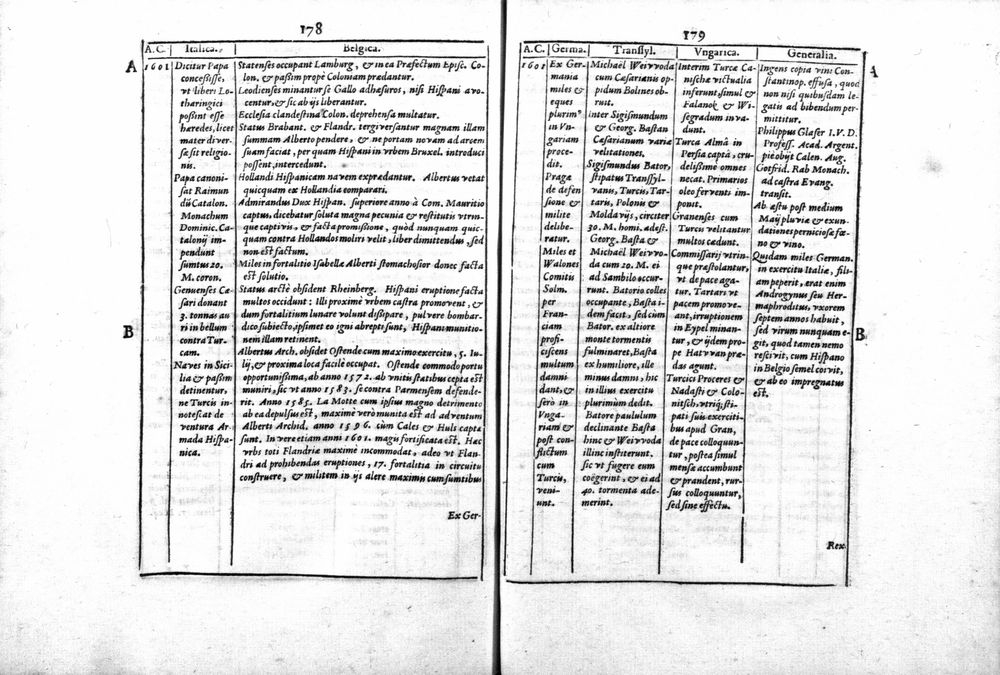 178
A.C.
Italica.
Belgica.
A
1601
Dicitur Papa
concessisse,
vt liberi Lo-
tharingici
possint esse
haredes, licet
mater diver-
sæ sit religio-
nis.
Papa canoni-
sat Raimun
dũ Catalon.
Monachum
Dominic. Ca-
talonij im-
pendunt
sumtus 20.
M. coron.
Genuenses Cæ-
sari donant
3. tonnas au
ri in bellum
contra Tur-
cam.
Naves in Sici-
lia & passim
detinentur,
ne Turcis in-
notescat de
ventura Ar-
mada Hispa-
nica.
B
Statenses occupant Lamburg, & in ea Præfectum Episc. Co-
lon. & passim propè Coloniam prædantur.
Leodienses minantur se Gallo adhæsuros, nisi Hispani avo-
centur, & sic ab ijs liberantur.
Ecclesia clandestina Colon. deprehensa mulctatur.
Status Brabant. & Flandr. tergiversantur magnam illam
summam Alberto pendere, & ne portam novam ad arcem
suam faciat, per quam Hispani in vrbem Bruxel. introduci
possent, intercedunt.
Hollandi Hispanicam navem exprædantur. Albertus vetat
quicquam ex Hollandia comparari.
Admirandus Dux Hispan. superiore anno à Com. Mauritio
captus, dicebatur soluta magna pecunia & restitutis vtrin-
que captivis, & facta promissione, quòd nunquam quic-
quam contra Hollandos moliri velit, liber dimittendus, sed
non est factum.
Miles in fortalitio Isabellæ Alberti stomachosior donec facta
est solutio.
Status arctè obsident Rheinberg. Hispani eruptione facta
multos occidunt: Illi proximè vrbem castra promovent, &
dum fortalitium lunare volunt dissipare, pulvere bombar-
dico subiecto, ipsimet eo igni abreptsunt, Hispani munitio-
nem illam retinent.
Albertus Arch. obsidet Ostende cum maximo exercitu, 5. Iu-
lij, & proxima loca facilè occupat. Ostende commodo portu
opportunissima, ab anno 1572. ab vnitis statibus cepta est
muniri, sic vt anno 1583. se contra Parmensem defende-
rit. Anno 1585. La Motte cum ipsius magno detrimento
ab ea depulsus est, maximè verò munita est ad adventum
Alberti Archid. anno 1596. cùm Cales & Huls capta
sunt. In vere etiam anni 1601. magis fortificata est. Hæc
vrbs toti Flandriæ maximè incommodat, adeo vt Flan-
dri ad prohibendas eruptiones, 17. fortalitia in circuitu
construere, & militem in ijs alere maximis cum sumtibus
Ex Ger-
179
A.C.
Germa.
Transsyl.
Vngarica.
Generalia.
A
1601
Ex Ger
mania
miles &
eques
plurimꝰ
in Vn-
gariam
proce-
dit.
Pragæ
de defen
sione &
milite
delibe-
ratur.
Miles et
Walones
Comitis
Solm.
per
Fran-
ciam
profi-
ciscens
multum
damni
dant, &
serò in
Vnga-
riam &
post con-
flictum
cum
Turcis,
veni-
unt.
Michaël Weivvoda
cum Cæsarianis op-
pidum Bolines ob-
rust.
inter Sigismundum
& Georg. Bastan
Cæsarianum varia
velitationes.
Sigismundus Bator,
stipatus Transsyl-
vanis, Turcis, Tar-
taris, Polonis &
Moldavijs, circiter
30. M. homi. adest.
Georg. Basta &
Michaël Weivvo-
da cum 20. M. ei
ad Sambilo occur-
runt. Batorio colles
occupante, Basta i-
dem facit, sed cùm
Bator. ex altiore
monte tormentis
fulminaret, Basta
ex humiliore, ille
minus damni, hic
in illius exercitu
plurimùm dedit.
Batore paululum
declinante Basta
hinc & Weivvoda
illinc institerunt.
sic vt fugere eum
coëgerint, & ei ad
40. tormenta ade-
merint.
Interim Turcæ Ca-
nischæ victualia
inferunt, simul &
Falanok & Wi-
segradum inva-
dunt.
Turca Almâ in
Persia captâ, cru-
delissimè omnes
necat. Primarios
oleo ferventi im-
ponit.
Granenses cum
Turcis velitantur
multos cædunt.
Commissarij vtrin-
que præstolantur,
vt de pace aga-
tur. Tartari vt
pacem promove-
ant, irruptionem
in Eypel minan-
tur, & ijdem pro-
pe Hatvvan præ-
das agunt.
Turcici Proceres &
Nadasti & Colo-
nitsch, vtriq; sti-
pati suis exerciti-
bus apud Gran,
de pace colloquun-
tur, postea simul
mensæ accumbunt
& prandent, rur-
sus colloquuntur,
sed sine effectu.
Ingens copia vini Con-
stantinop. effusa, quod
non nisi quibusdam le-
gatis ad bibendum per-
mittitur.
Philippus Glaser I.V.D.
Profess. Acad. Argent.
pie obijt Calen. Aug.
Gotfrid. Rab Monach.
ad castra Evang.
transit.
Ab æstu post medium
Maij pluviæ & exun-
dationes perniciosæ fœ-
no & vino.
Quidam miles German.
in exercitu Italiæ, fili-
am peperit, erat enim
Androgynus seu Her-
maphroditus, vxorem
septem annos habuit,
sed virum nunquam e-
git, quod tamen nemo
rescivit, cum Hispano
in Belgio semel corvit,
& ab eo impregnatus
est.
B
Rex